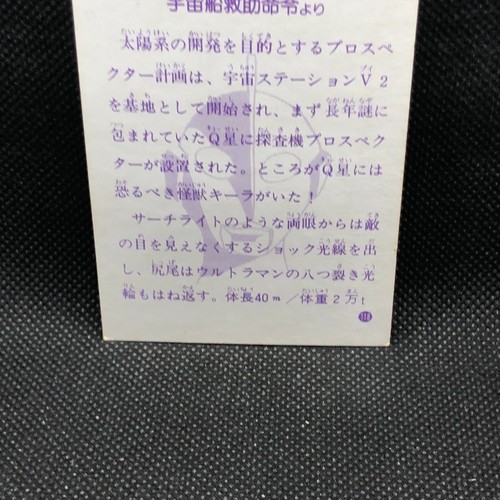 宇宙船救助命令より
太陽系の開発を目的とするプロスペ
クター計画は、宇宙ステーションV2
を基地として開始され、まず長年謎に
包まれていたQ星に探査機プロスペク
ターが設置された。ところがQ星には
恐るべき怪獣キーラがいた！
サーチライトのような両眼からは敵
の目を見えなくするショック光線を出
し、尻尾はウルトラマンの八つ裂き光
輪もはね返す。体長40m／体重2万t